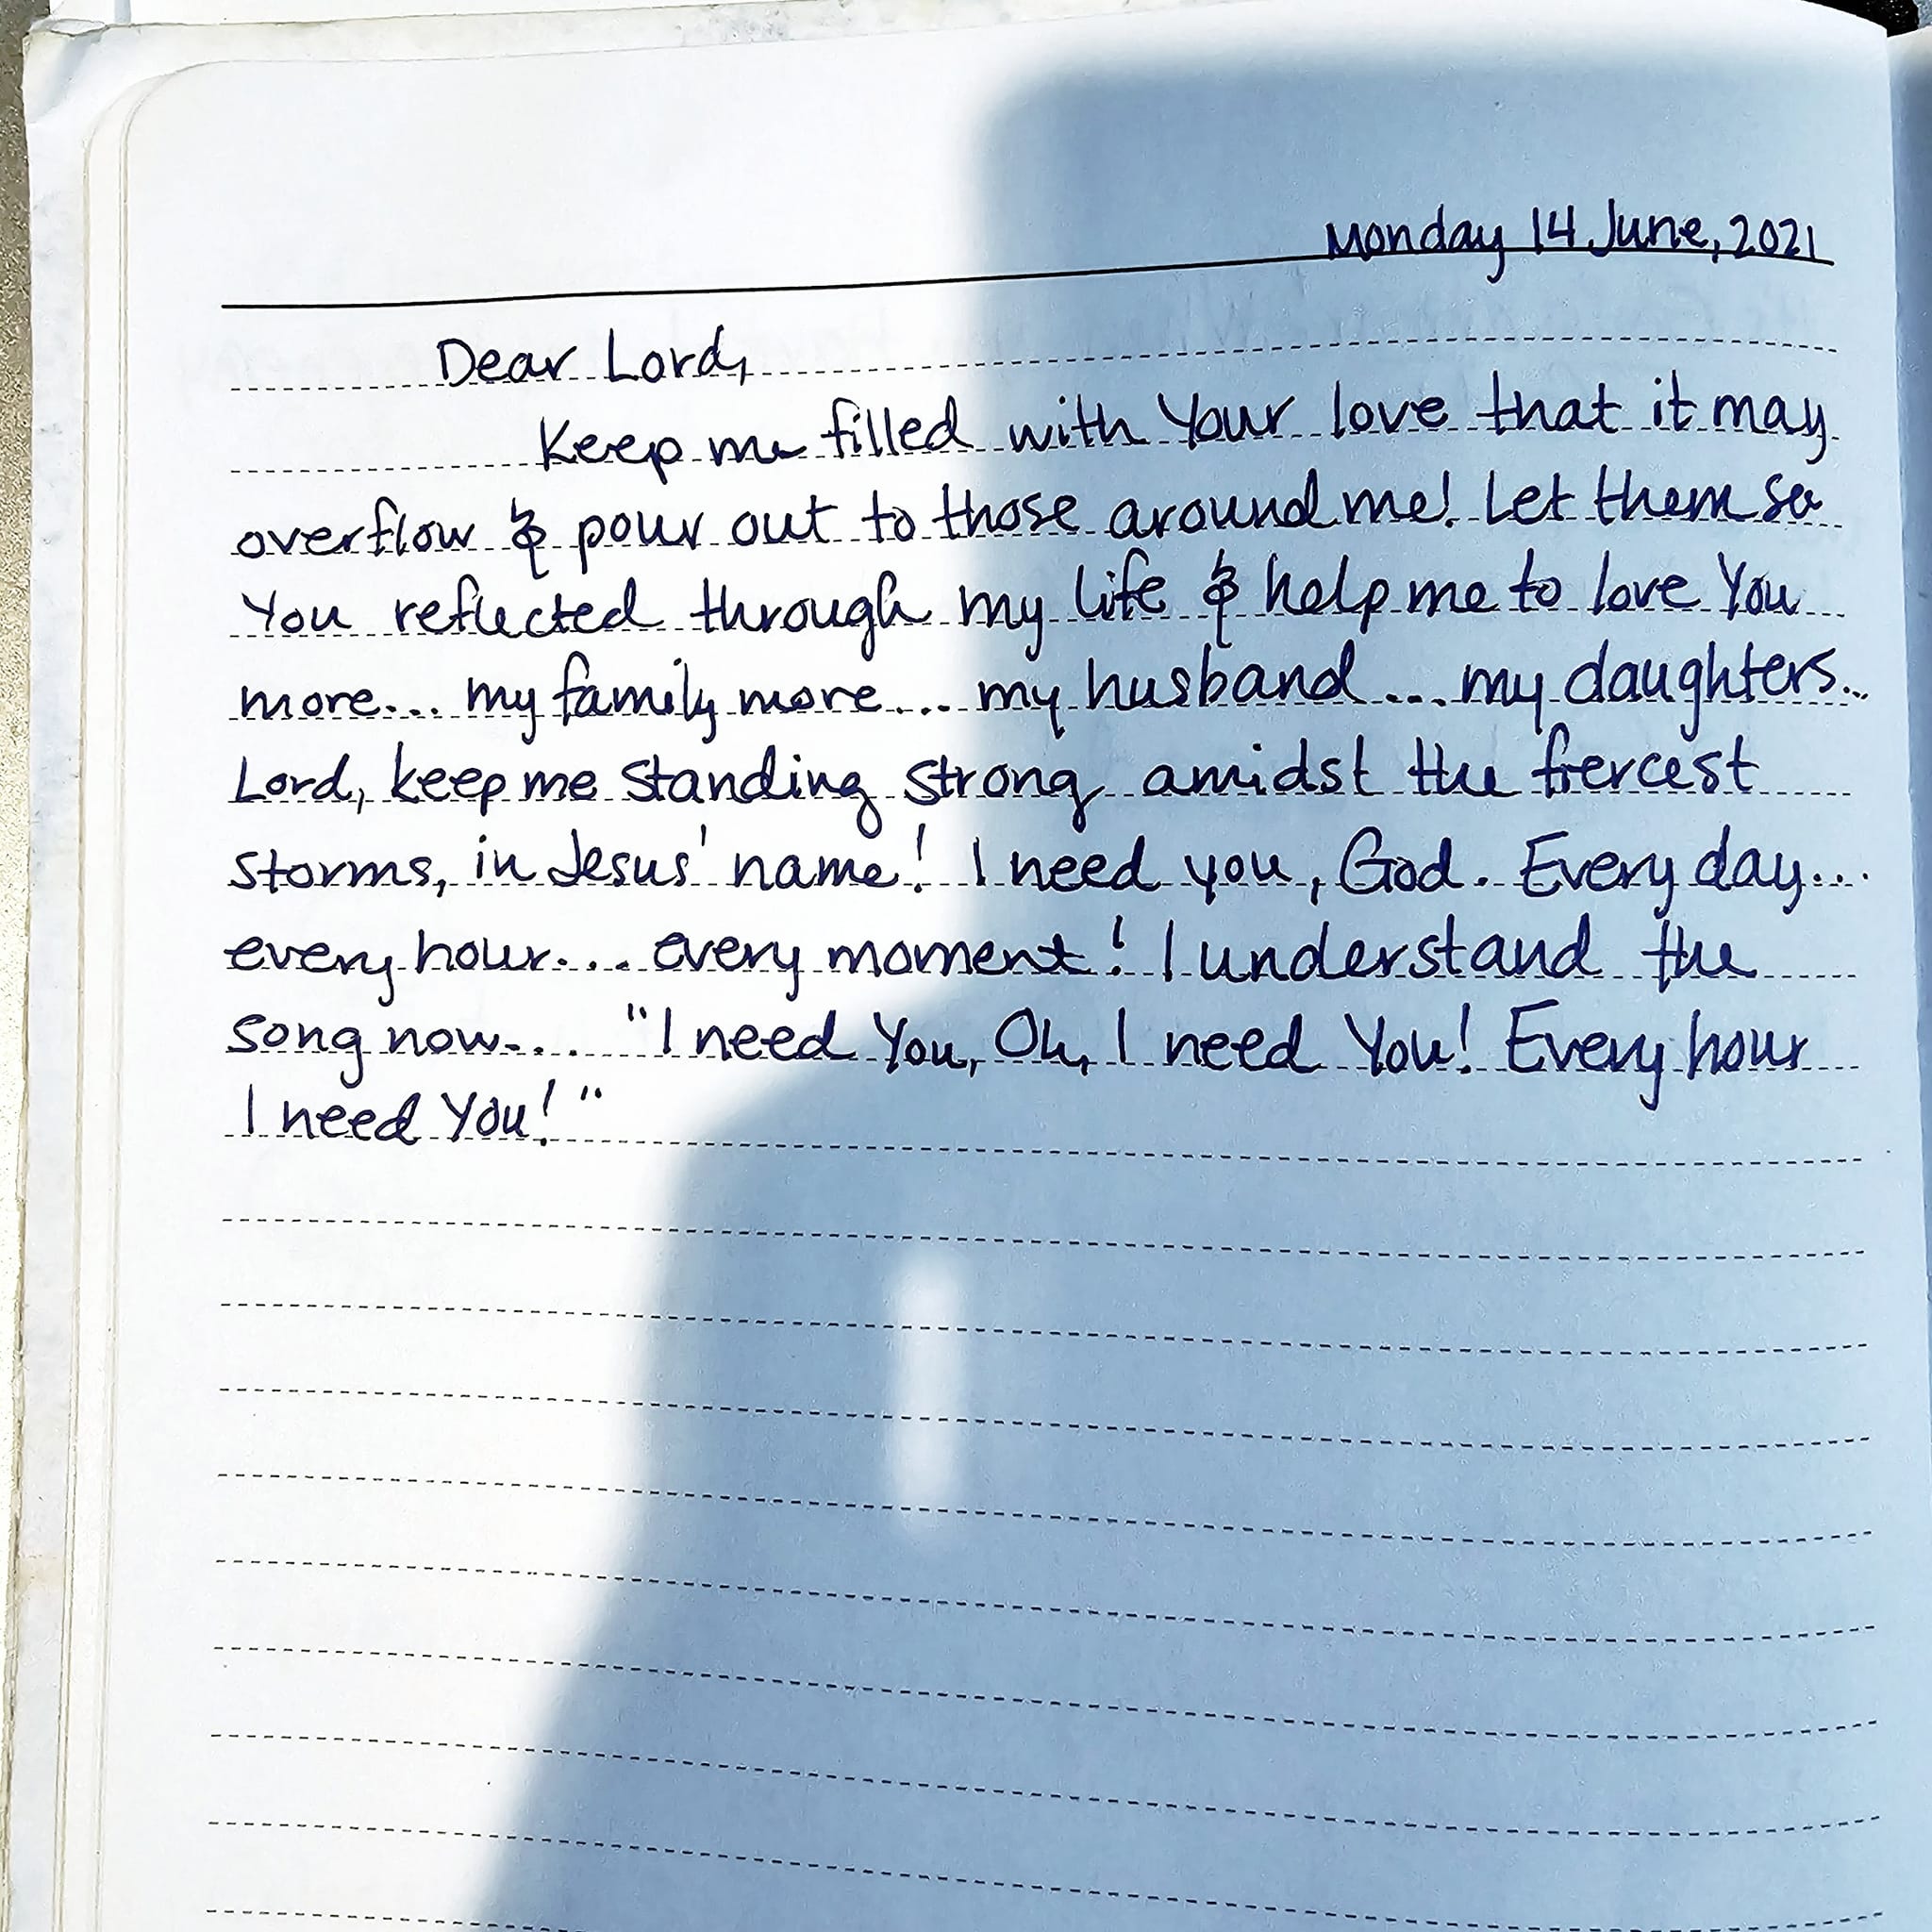 Monday 14 June, 2021
Dear Lord,
Keep me filled with Your love that it may
overflow & pour out to those around me! Let them see
You reflected through my life & help me to love You
more... my family more... my husband... my daughters...
Lord, keep me standing strong amidst the fiercest
storms, in Jesus' name! I need you, God. Every day...
every hour... every moment! I understand the
song now... "I need You, Oh, I need You! Every hour
I need You!"